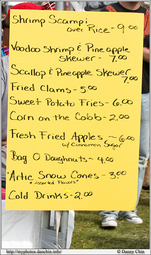 Shrimp Scampi
over Rice - 9.00
Voodoo Shrimp & Pineapple
Skewer - 7.00
Scallop & Pineapple Skewer
7.00
Fried Clams - 5.00
Sweet Potato Fries - 6.00
Corn on the Cobb - 2.00
Fresh Fried Apples - 6.00
w/ Cinnamon Sugar
Bag O Doughnuts - 4.00
Artic Snow Cones - 3.00
* Assorted Flavors *
Cold Drinks - 2.00
http://myphotos.danchin.info/
© Danny Chin